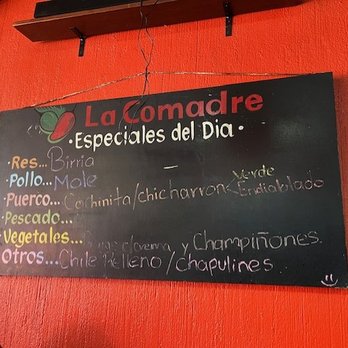 La Comadre
·Especiales del Dia·
·Res... Birria
·Pollo... Mole
Verde
·Puerco... Cochinita/chicharron Endiablado
·Pescado...
·Vegetales... y Champiñones.
Otros... Chile Relleno/chapulines